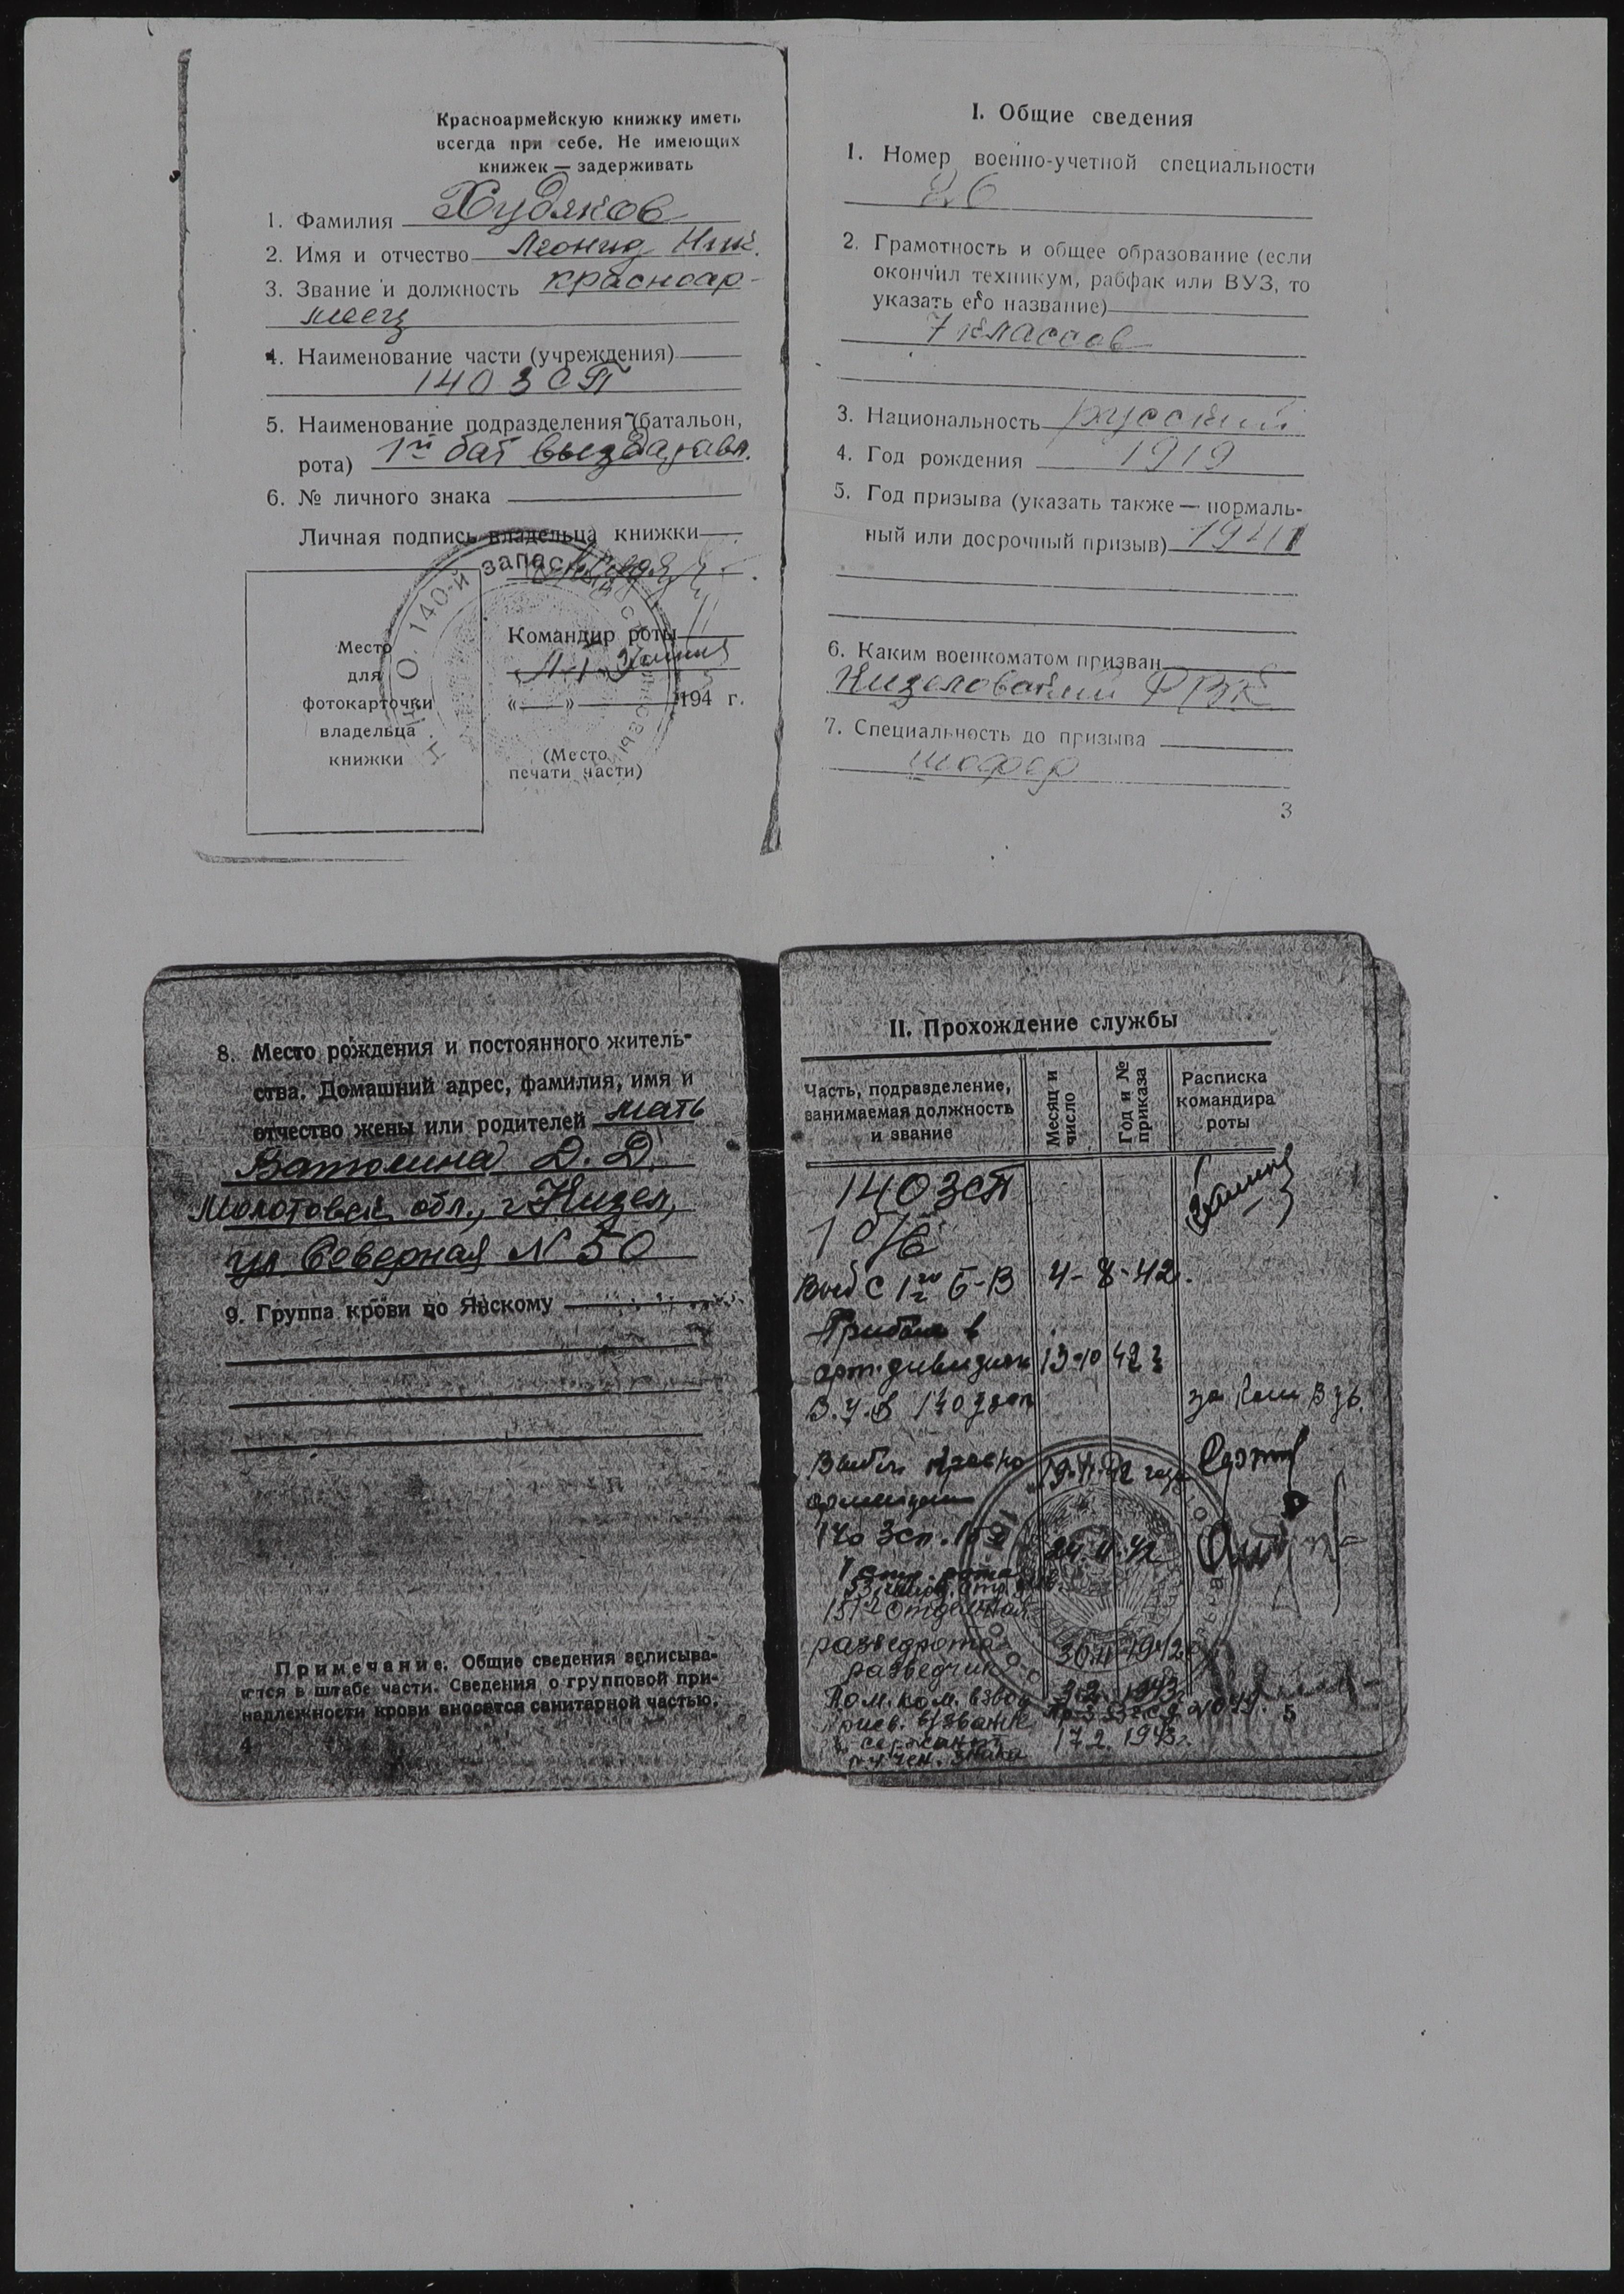 Красноармейскую книжку иметь
всегда при себе. Не имеющих
книжек — задерживать
1. Фамилия Худяков
2. Имя и отчество Леонид Ник.
3. Звание и должность красноар-
меец
4. Наименование части (учреждения)
140 ЗСП
5. Наименование подразделения (батальон,
рота) 1й бат выздаравл.
6. № личного знака
Личная подпись владельца книжки
140-й запасн
Место
для
фотокарточки
владельца
книжки
Командир роты
« » 194 г.
(Место
печати части)
I. Общие сведения
1. Номер военно-учетной специальности
26
2. Грамотность и общее образование (если
окончил техникум, рабфак или ВУЗ, то
указать его название)
7 классов
3. Национальность русский
4. Год рождения 1919
5. Год призыва (указать также — нормаль-
ный или досрочный призыв) 1941
6. Каким военкоматом призван
Кизеловский РВК
7. Специальность до призыва
шофер
3
8. Место рождения и постоянного житель-
ства. Домашний адрес, фамилия, имя и
отчество жены или родителей мать
Ватолина Д. Д.
Молотовск обл., г Кизел,
ул Северная N 50
9. Группа крови по Янскому
Примечание. Общие сведения вписыва-
ются в штабе части. Сведения о групповой при-
надлежности крови вносятся санитарной частью.
4
II. Прохождение службы
Часть, подразделение,
занимаемая должность
и звание
Месяц и
число
Год и №
приказа
Расписка
командира
роты
140 ЗСП
1 б/в
Выб с 1го Б-В 4-8-42.
Прибыл в
арт. дивизион 13-10 42 г
В. У. В 140 за Ком Взв.
Выбыл 19.11.42 года
140 Зсп. 24.11.42
1 стр. рота
отдельная
разведрота 30.11 1942
разведчик
Пом. ком. взвода 3.2. 1943
Присв. в/звание
сержант 17.2. 1943г.
5